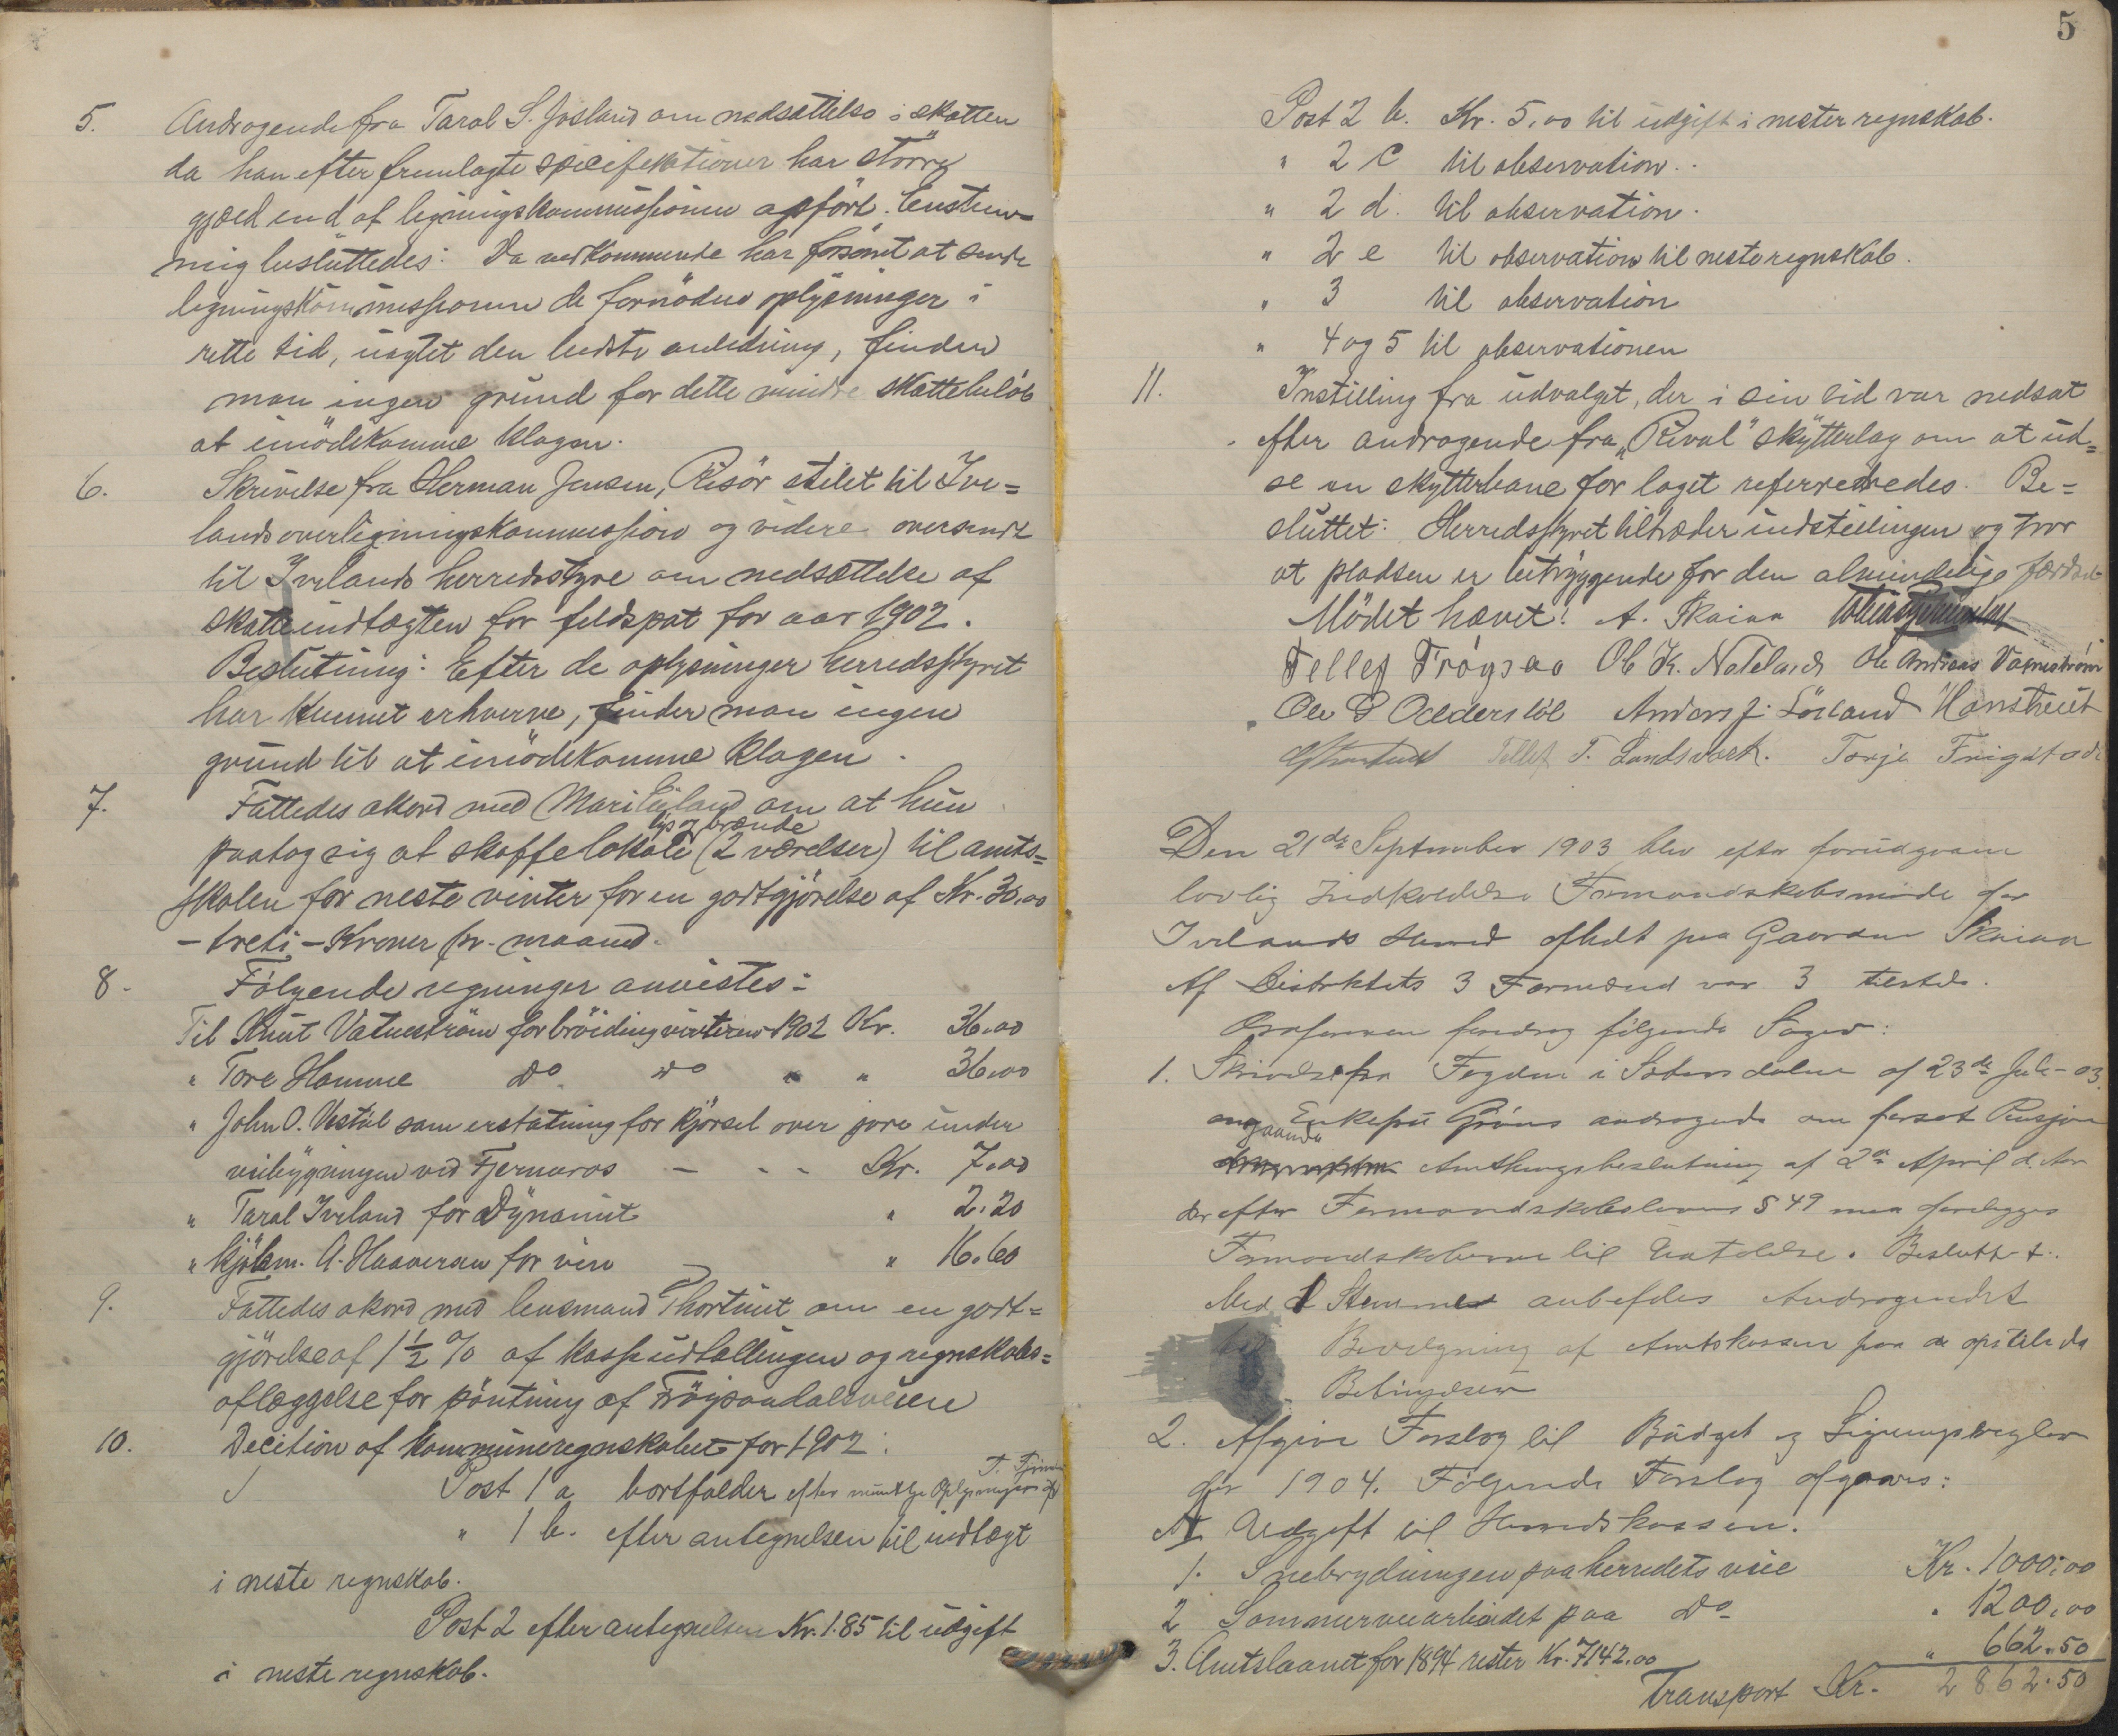 5. Andragende fra Taral S. Josland om nedsættelse i skatten
da han efter fremlagte specifikationer har større
gjæld end af ligningskommissionen opført. Enstem-
mig besluttedes: Da vedkommende har forsømt at sende
ligningskommissionen de fornødne oplysninger i
rette tid, uagtet den bedste anledning, finder
man ingen grund for dette mindre skattebeløb
at imødekomme klagen.
6. Skrivelse fra Herman Jensen, Risör stilet til Ive=
lands overligningskommission og videre oversendt
til Ivelands herredsstyre om nedsættelse af
skatteindtægten for feldspat for aar 1902.
Beslutning: Efter de oplysninger herredsstyret
har kunnet erhverve, finder man ingen
grund til at imødekomme klagen.
7. Fattedes akord med Mari Eiland om at hun
lys og brænde
paatog sig at skaffe lokale (2 værelser) til amts=
skolen for neste vinter for en godtgjörelse af Kr. 30,00
- treti - Kroner pr. maaned.
8. Følgende regninger anvistes:
Til Knut Vatneström for bröiding vinteren 1902 Kr. 36,00
" Tore Homme do do " " 36,00
" John O. Vestöl som erstatning for kjörsel over jore under
veibygningen ved Fjermeros - - - Kr. 7,00
" Taral Iveland for Dynamit " 2.20
" Kjöbm. A. Haaversen for vin " 16.60
9. Fattedes akord med lensmand Thortveit om en godt=
gjörelse af 1 1/2 % af kasseudtællingen og regnskabs=
aflæggelse for pöntning af Fröysaadalsveien
10. Decition af kommuneregnskabet for 1902:
Post 1 a bortfalder efter muntlige Oplysninger af T.
" 1 b. efter antegnelsen til indtægt
i neste regnskab.
Post 2 efter antegnelsen Kr. 1.85 til udgift
i neste regnskab.
5
Post 2 b. Kr. 5,00 til udgift i nester regnskab.
" 2 c til observation.
" 2 d. til observation.
" 2 e til observation til neste regnskab.
" 3 til observation
" 4 og 5 til observationen
11. Instilling fra udvalget, der i sin tid var nedsat
efter andragende fra "Rival" skytterlag om at ud=
se en skytterbane for laget refereredes. Be=
sluttet: Herredsstyret tiltræder indstillingen og tror
at pladsen er betryggende for den almindelige færdsel
Mödet hævet! A. Skaiaa
Tellef Frøysaa Ole K. Nateland Ole Andreas Vatnestrøm
Ole G Oddersløl Anders J. Lösland H Omstveit
Tellef T. Landsverk. Torje Frigstad
Den 21de September 1903 blev efter forudgaaen
lovlig Indkaldelse Formandskabsmøde for
Ivelands Herred afholdt paa Gaarden Skaiaa
Af Distriktets 3 Formænd var 3 tilstede.
Ordføreren foredrog følgende Sager:
1. Skrivelse fra Fogden i Sætersdalen af 23de Juli - 03
angaaende Enkefru Gröns andragende om forsat Pension
Amthingsbeslutning af 2den April d. Aar
der efter Formandskabslovens § 49 maa forelægges
Formandskaberne til Udtalelse. Besluttet:
Med 1 Stemme anbefales Andragendet
til Bevilgning af Amtskassen paa de opstillede
Betingelser
2. Afgive Forslag til Budget og Ligningsregler
for 1904. Følgende Forslag afgaves:
A I Udgift til Herredskassen.
1. Snebrydningen paa herredets veie Kr. 1000,00
2 Sommerveiarbeidet paa do " 1200,00
3. Amtslaanet for 1894 rester Kr. 7142.00 " 662.50
Transport Kr. 2862.50